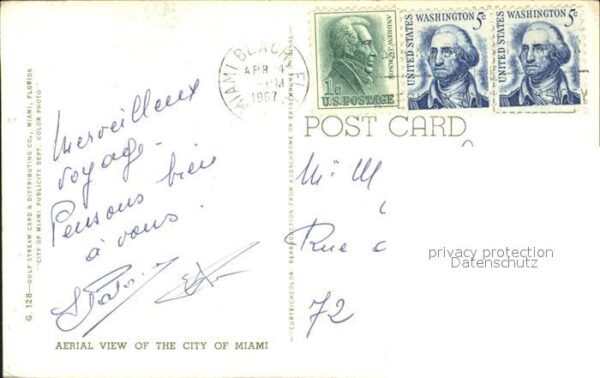 G. 128—GULF STREAM CARD & DISTRIBUTING CO., MIAMI, FLORIDA
"CITY OF MIAMI PUBLICITY DEPT. COLOR PHOTO"
Merveilleux
voyage -
Pensons bien
à vous !
AERIAL VIEW OF THE CITY OF MIAMI
MIAMI BEACH, FL
APR
PM
1967
ANDREW JACKSON
1c
U.S. POSTAGE
UNITED STATES
WASHINGTON 5c
UNITED STATES
WASHINGTON 5c
POST CARD
CURTEICHCOLOR REPRODUCTION FROM KODACHROME OR EKTACHROME ORIGINAL
Mr M
Rue
72
privacy protection
Datenschutz